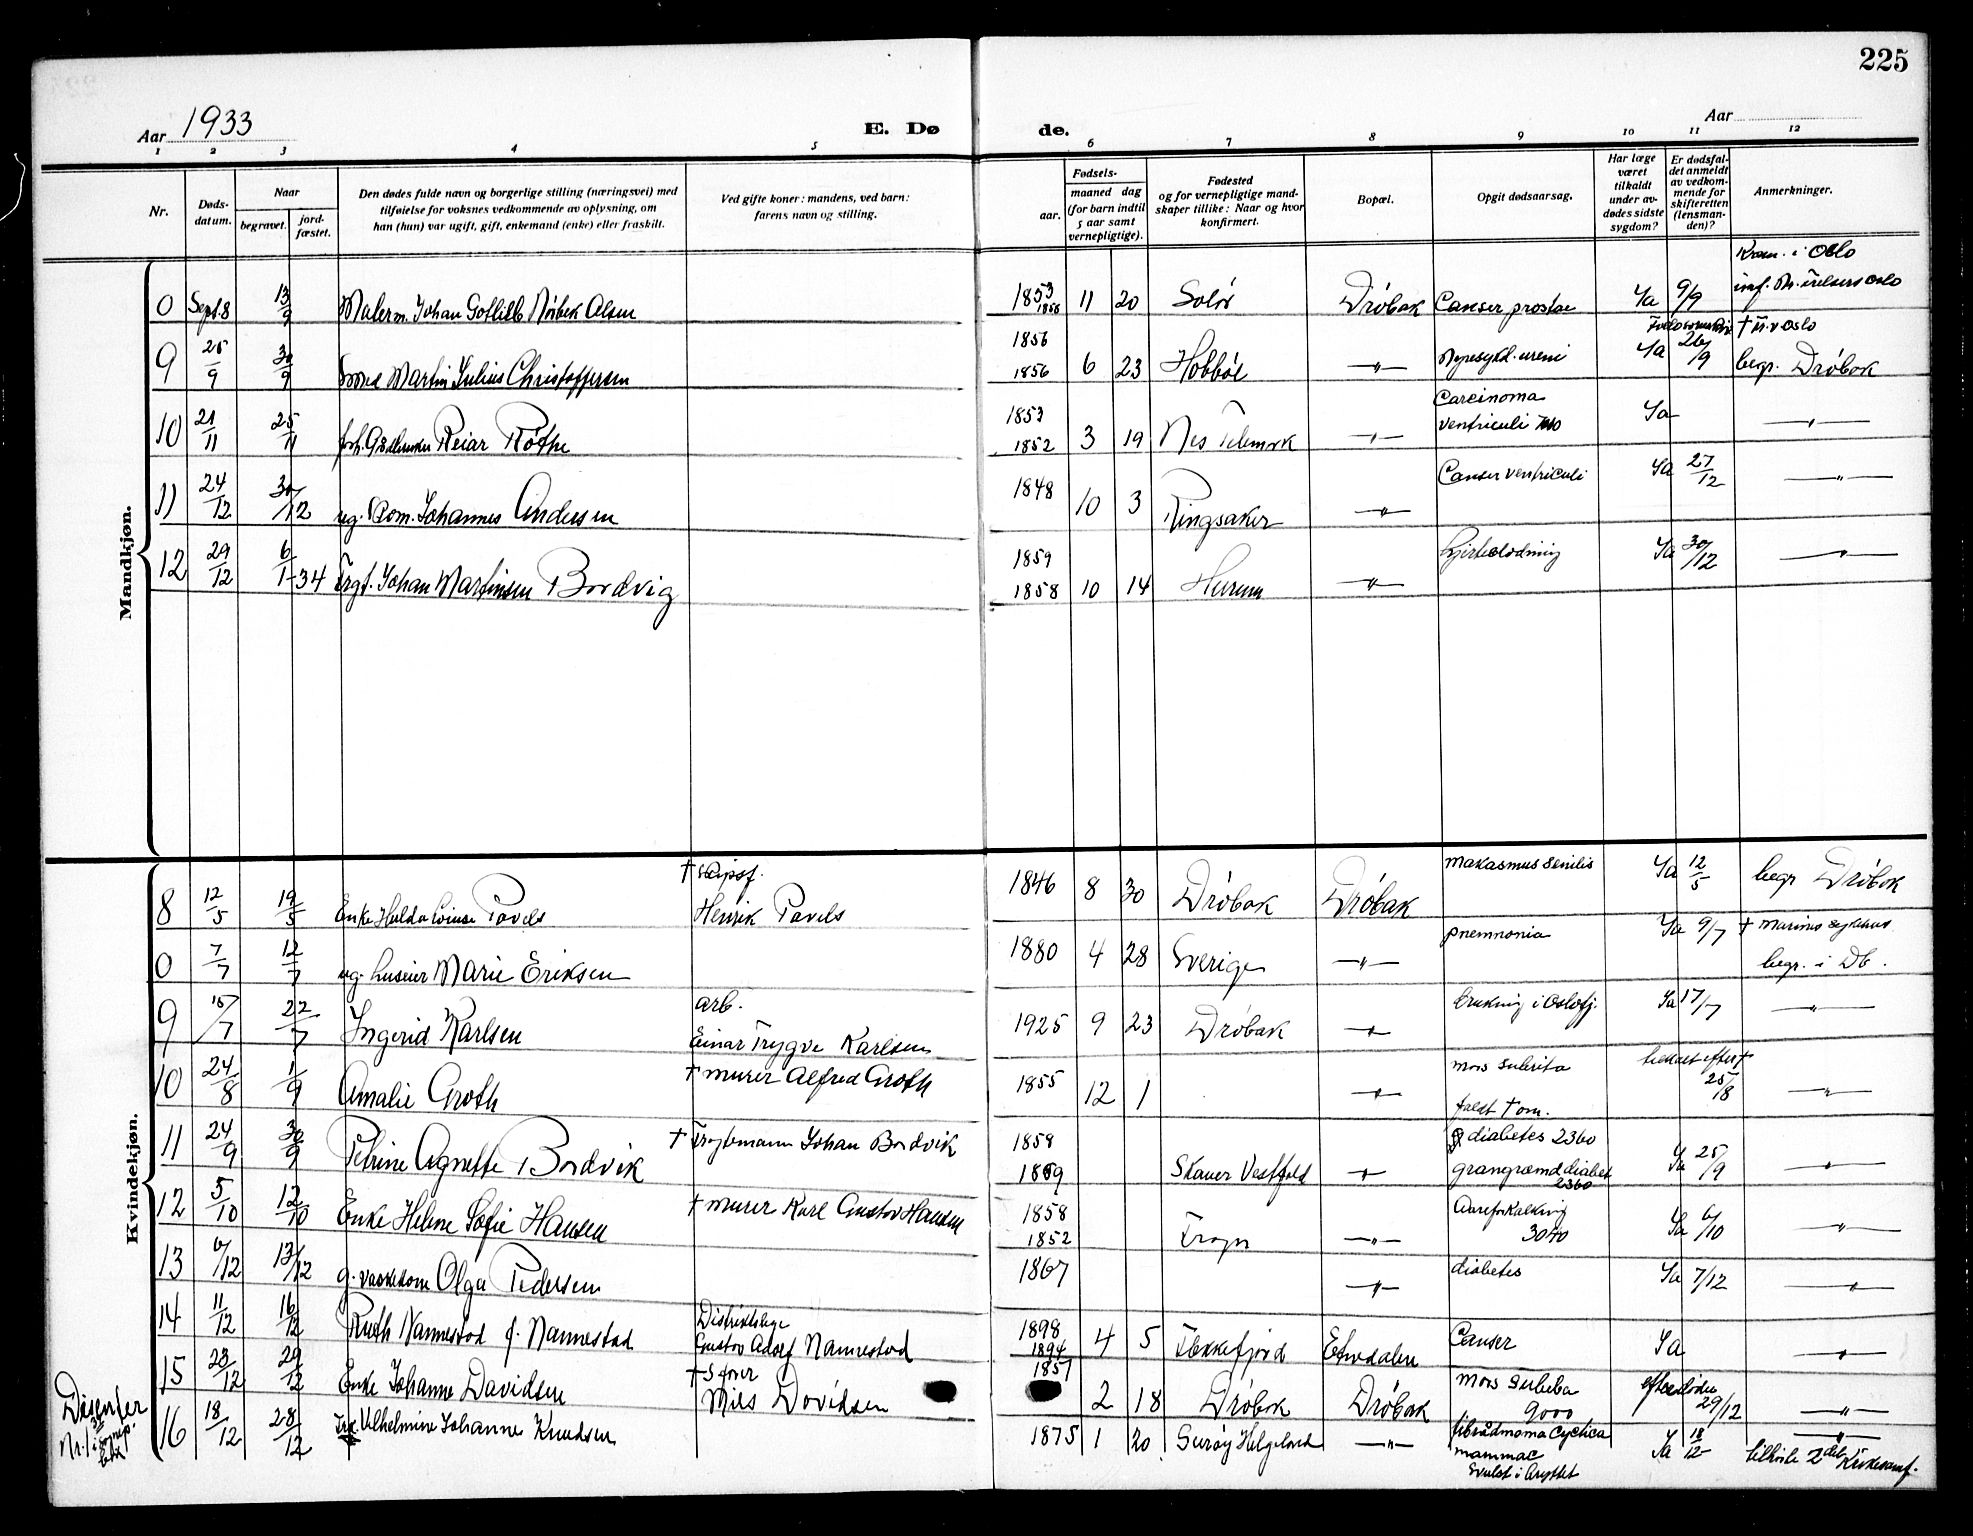 225
Aar 1933
E. Dø
de.
Aar
1 2 3 4 5 6 7 8 9 10 11 12
Nr.
Døds-
datum.
Naar
begravet.
jord-
fæstet.
Den dødes fulde navn og borgerlige stilling (næringsvei) med
tilføielse for voksnes vedkommende av oplysning, om
han (hun) var ugift, gift, enkemand (enke) eller fraskilt.
Ved gifte koner: mandens, ved barn:
farens navn og stilling.
Fødsels-
aar.
maaned dag
(for barn indtil
5 aar samt
vernepligtige).
Fødested
og for vernepligtige mand-
skaper tillike: Naar og hvor
konfirmert.
Bopæl.
Opgit dødsaarsag.
Har læge
været
tilkaldt
under av-
dødes sidste
sygdom?
Er dødsfal-
det anmeldt
av vedkom-
mende for
skifteretten
(lensman-
den)?
Anmerkninger.
Mandkjøn.
Krem. i Oslo
0 Sept. 8 13/9 Malerm. Johan Gotlieb Olsen 1853 11 20 Solør Drøbak Canser prostae Ja 9/9
1856
† Oslo
9 25/9 30/9 Martin Julius Christoffersen 1856 6 23 Hobbøl —"— Nyresykd. uremi Ja 26/9 begr. Drøbak
1856
Carcinoma
10 21/11 25/11 Reiar Røthe 1853 3 19 Nes Telemark —"— ventriculi Ja —"—
1852
11 24/12 30/12 ug. Johannes Andersen 1848 10 3 Ringsaker —"— Canser ventriculi Ja 27/12 —"—
12 29/12 6/1-34 Johan Martinsen Bordvig 1859 10 14 Hurum —"— Ja 30/12 —"—
1858
Kvindekjøn.
† skipsf.
8 12/5 19/5 Enke Hulda Lovise Pavels Henrik Pavels 1846 8 30 Drøbak Drøbak Makasmus senilis Ja 12/5 begr Drøbak
0 7/7 12/7 ug. Marie Eriksen 1880 4 28 Sverige —"— pnemnonia Ja 9/7 † Marinens sykehus
begr. i Db.
arb.
9 15/7 22/7 Ingerid Karlsen Einar Trygve Karlsen 1925 9 23 Drøbak —"— Drukning i Oslofj. Ja 17/7 —"—
10 24/8 1/9 Amalie Groth † murer Alfred Groth 1855 12 1 —"— mors subita 25/8 —"—
faldt om.
11 24/9 30/9 Petrine Agnette Bordvik † Johan Bordvik 1858 Skauer Vestfold —"— diabetes 2360 Ja 25/9 —"—
1859
2360
12 5/10 12/10 Enke Helene Sofie Hansen † murer Karl Gustav Hansen 1858 Frogn —"— Aareforkalkning Ja 6/10 —"—
1852 3040
13 6/12 13/12 g. vaskekone Olga Pedersen 1867 —"— diabetes Ja 7/12 —"—
14 11/12 16/12 Ruth Nannestad f. Nannestad Distriktslege
Gustav Adolf Nannestad 1898 4 5 Flekkefjord Etnedalen Canser Ja —"—
1894
15 23/12 29/12 Enke Johanne Davidsen † Nils Davidsen 1851 2 18 Drøbak Drøbak Mors subita 29/12 —"—
9000
16 18/12 28/12 Vilhelmine Johanne Knudsen 1875 1 20 Helgeland —"— cystica Ja 18/12 —"—
mammae
Svulst i brystet
Disenter
Nr. 1